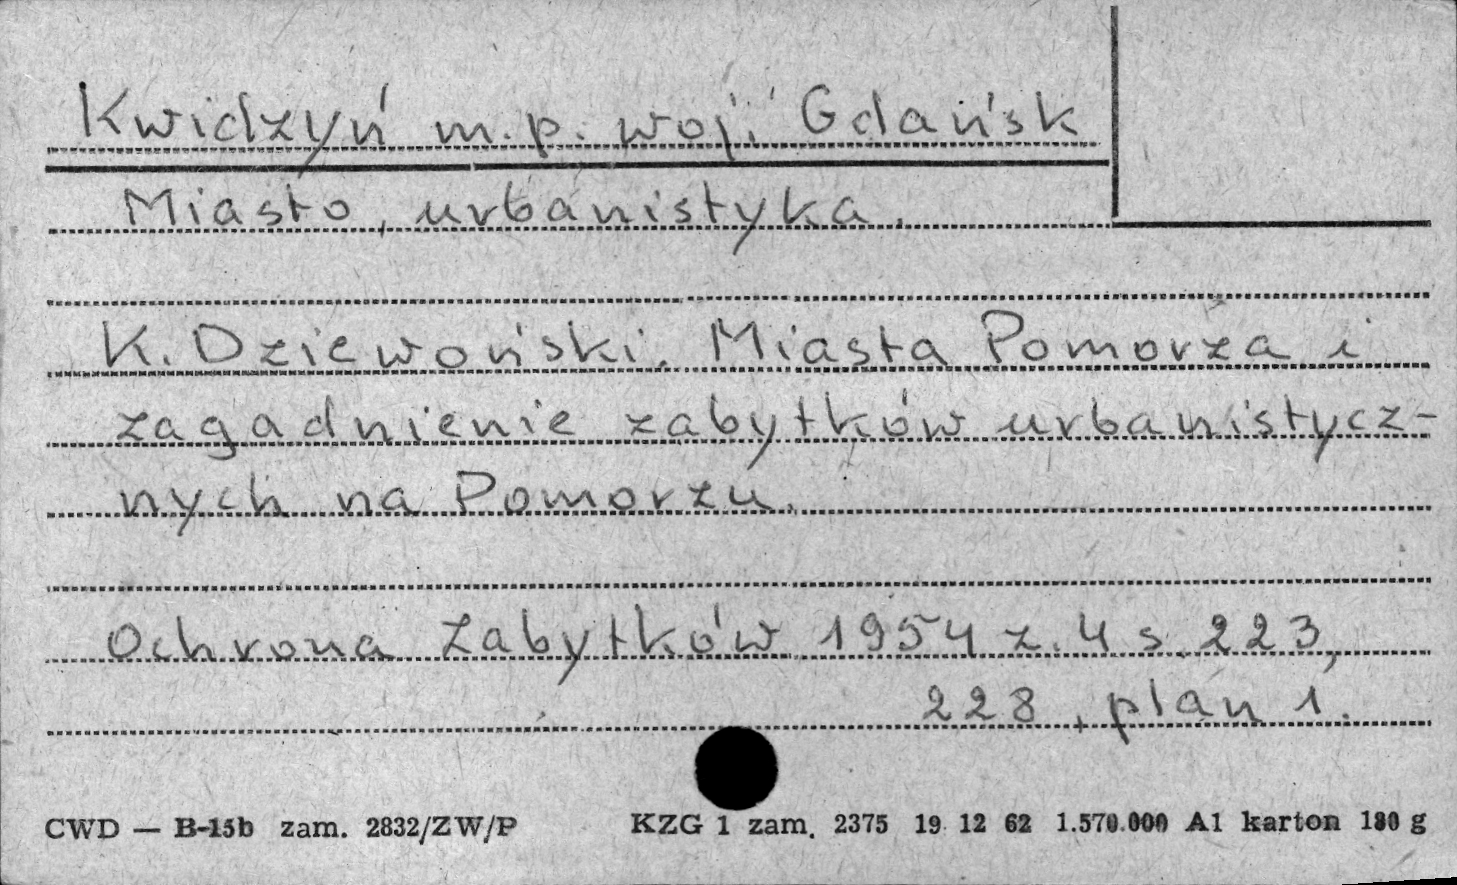 Kwidzyń m.p. woj. Gdańsk
Miasto, urbanistyka.
K. Dziewoński. Miasta Pomorza i
zagadnienie zabytków urbanistycz-
nych na Pomorzu.
Ochrona Zabytków 1954 z. 4 s. 223,
228, plan 1.
CWD — B-15b zam. 2832/ZW/P KZG 1 zam. 2375 19 12 62 1.570.000 A1 karton 180 g